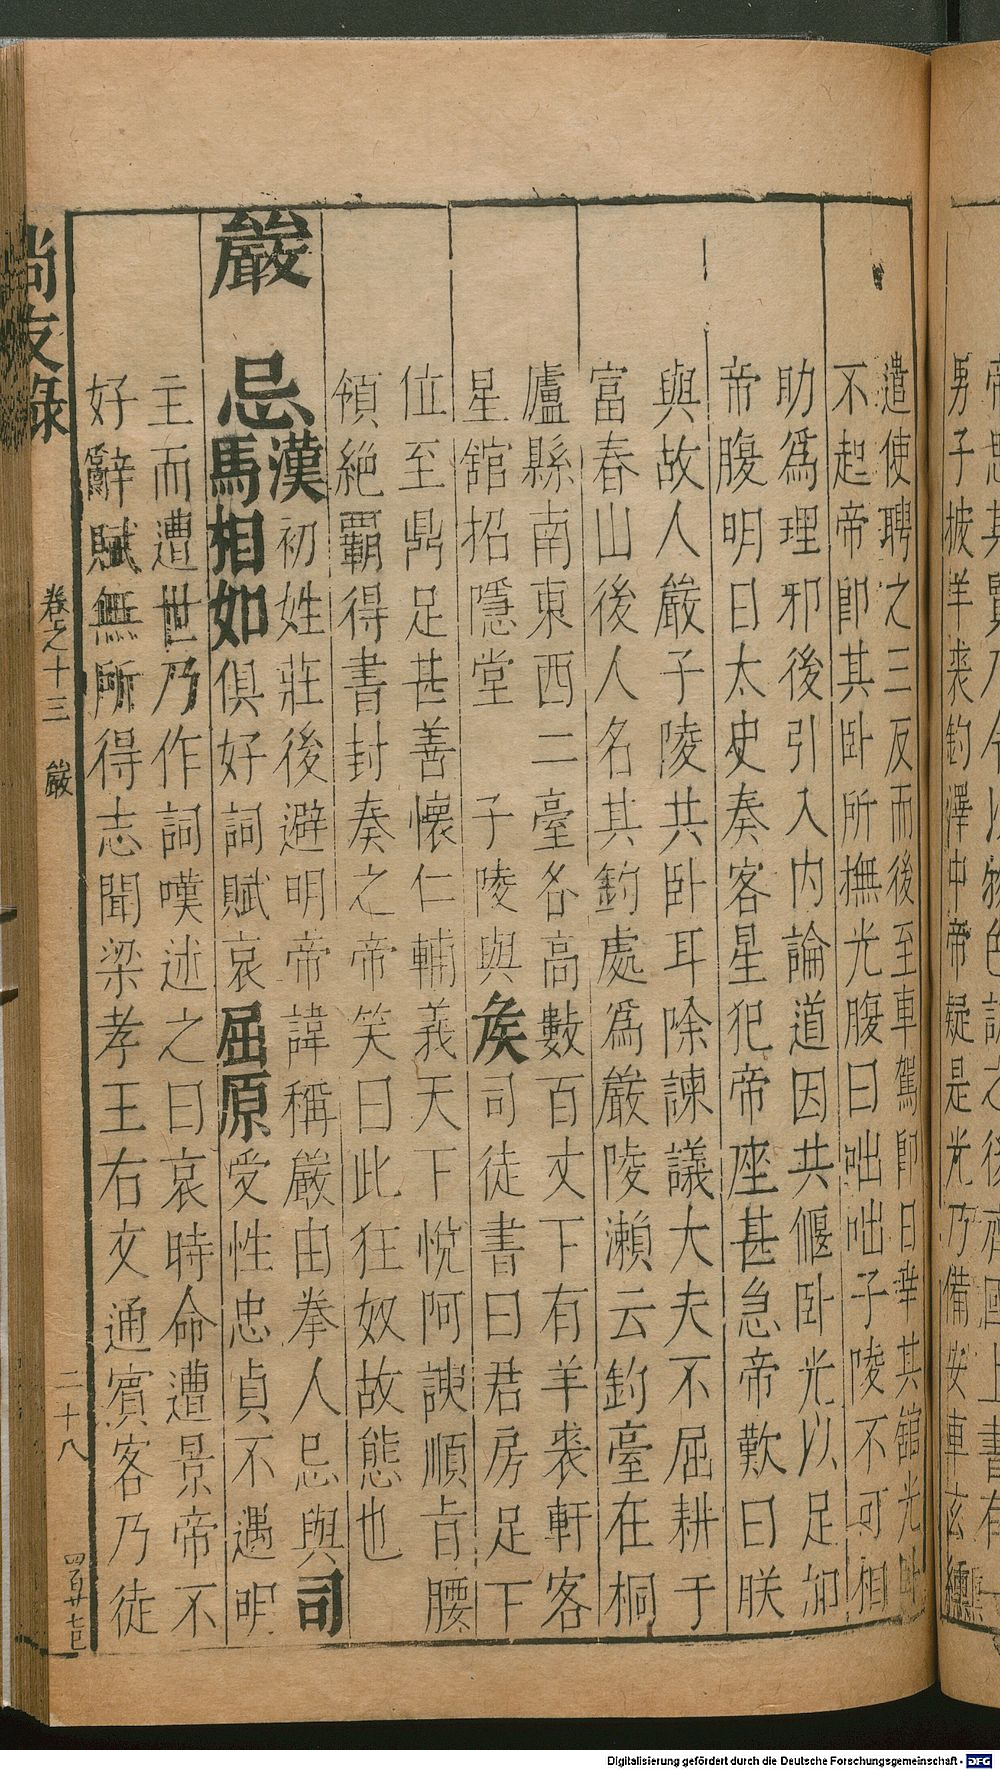 遣使聘之三反而後至車駕卽日幸其館光卧
不起帝卽其卧所撫光腹曰咄咄子陵不可相
助爲理邪後引入内論道因共偃卧光以足加
帝腹明日太史奏客星犯帝座甚急帝歎曰朕
與故人嚴子陵共卧耳除諫議大夫不屈耕于
富春山後人名其釣處爲嚴陵瀨云釣臺在桐
廬縣南東西二臺各高數百丈下有羊裘軒客
星館招隱堂　子陵與矦司徒書曰君房足下
位至鼎足甚善懷仁輔義天下悅阿諛順旨腰
領絕覇得書封奏之帝笑曰此狂奴故態也
嚴　忌漢初姓莊後避明帝諱稱嚴由拳人忌與司
馬相如俱好詞賦哀屈原受性忠貞不遇明
主而遭世乃作詞嘆述之曰哀時命遭景帝不
好辭賦無所得志聞梁孝王右文通賓客乃徒
尚友錄　卷之十三　嚴　二十八　四百廿七巳
男子披羊裘釣澤中帝疑是光乃備安車玄纁
Digitalisierung gefördert durch die Deutsche Forschungsgemeinschaft - DFG